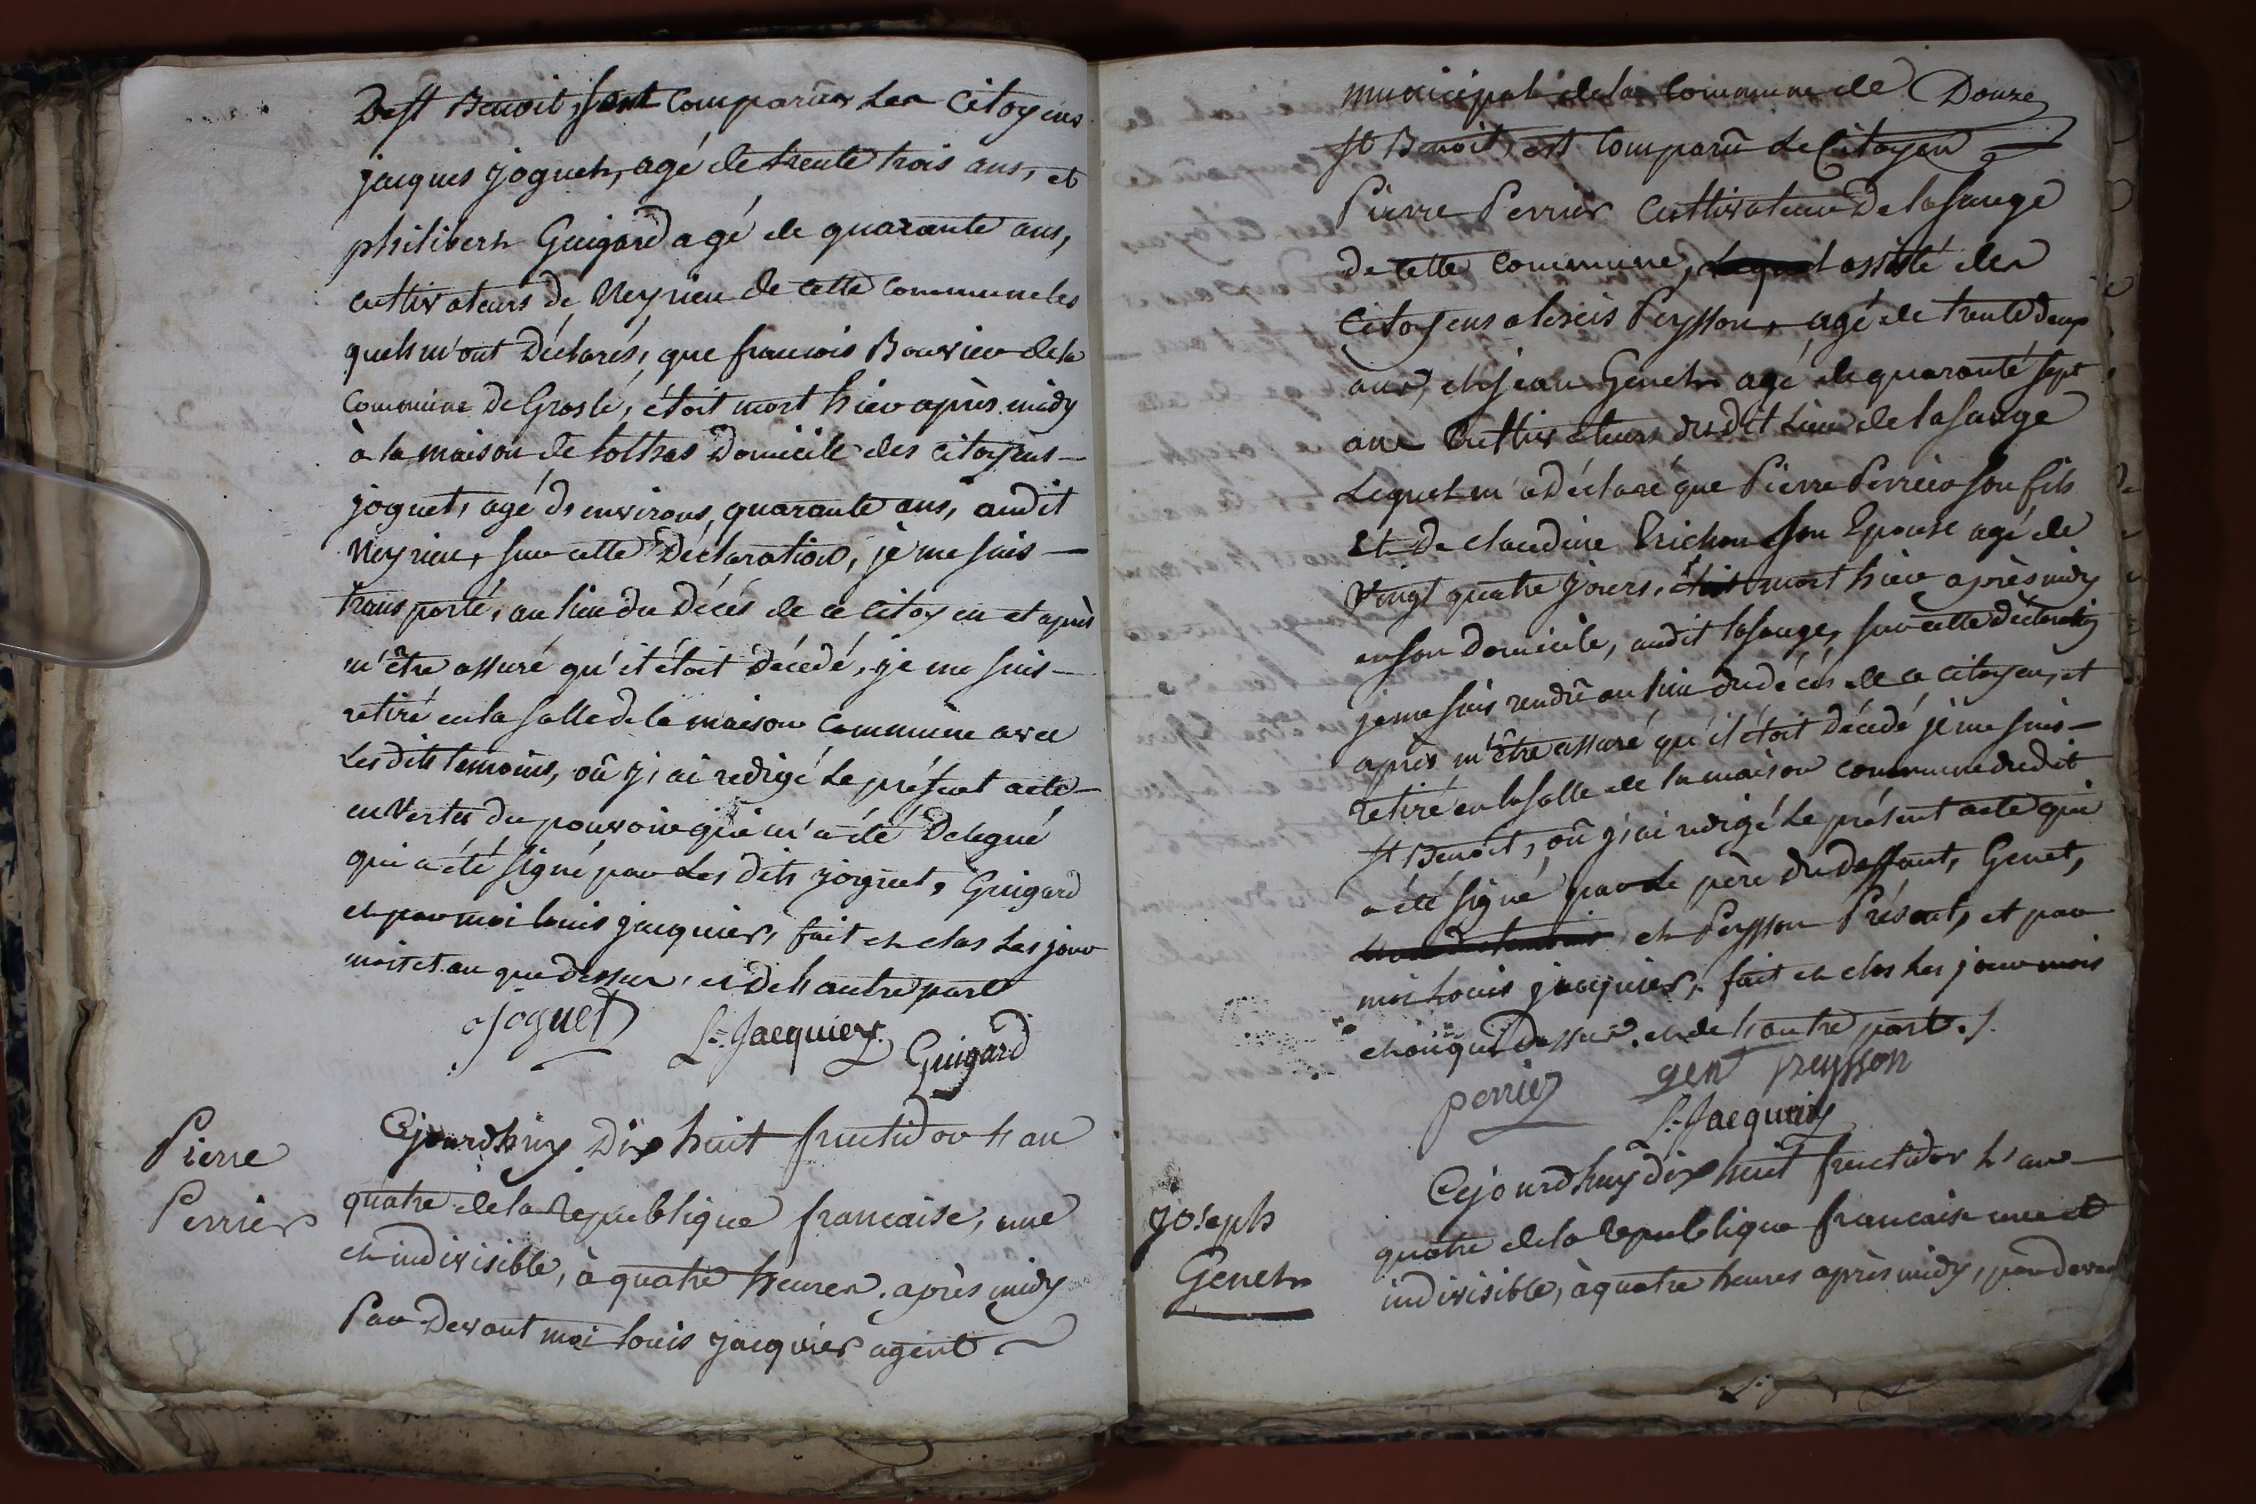 De st Benoit, sont comparûs Les Citoyens
jacques joguet, agé de trente trois ans, et
philibert Guigard agé de quarante ans,
cultivateurs de Neyrieu de cette commune les
quels m'ont Déclarés, que francois Bouvier de la
Commune De Groslé, étoit mort hier après midy
à la maison de Domicile des citoyens —
joguet, agé d'environs quarante ans, audit
Neyrieu, sur cette Déclaration, je me suis —
transporté, au lieu du Décés de ce Citoyen et après
m'être assuré qu'il étoit décédé, je me suis —
retiré en la salle de la maison Commune avec
Lesdits temoins, où j'ai redigé Le présent acte —
en Vertu du pouvoir qui m'a été Delegué
qui a été signé par Les dits joguet, Guigard
et par moi Louis jacquier, fait et clos Les jour
mois et an que dessus, et De h autre part
joguet L.s Jacquier Guigard
Pierre
Perrier
Cejourdhuy Dix huit fructidor h an
quatre de la republique francaise, une
et indivisible, à quatre heures après midy
Par Devant moi Louis jacquier agent
municipal de la Commune de Douze
st Benoit, est Comparû Le Citoyen
Pierre Perrier Cultivateur De la Sauge
de cette Commune, assisté des
Citoyens alexis Peysson, agé de trente deux
ans, et jean Genet agé de quarante sept
ans Cultivateurs dudit Lieu de la Sauge
Lequel m'a Déclaré que Pierre Perrier son fils
Et De claudine son Epouse agé de
Vingt quatre jours, étoit mort hier après midy
en son Domicile, audit la Sauge, sur cette déclaration
je me suis rendû au lieu du décés de ce citoyen, et
après m'être assuré qu'il étoit décédé je me suis —
retiré en la salle de la maison commune dudit
st Benoit, où j'ai redigé Le présent acte qui
a été signé par Le père du deffunt, Genet,
et Peysson Présent, et par
moi Louis jacquier, fait et clos Les jour mois
et an que Dessus, et de h autre part ./.
perrier gen peysson
L.s Jacquier
joseph
Genet
Cejourdhuy dix huit fructidor h an —
quatre de la republique francaise une et
indivisible, à quatre heures après midy, par devant